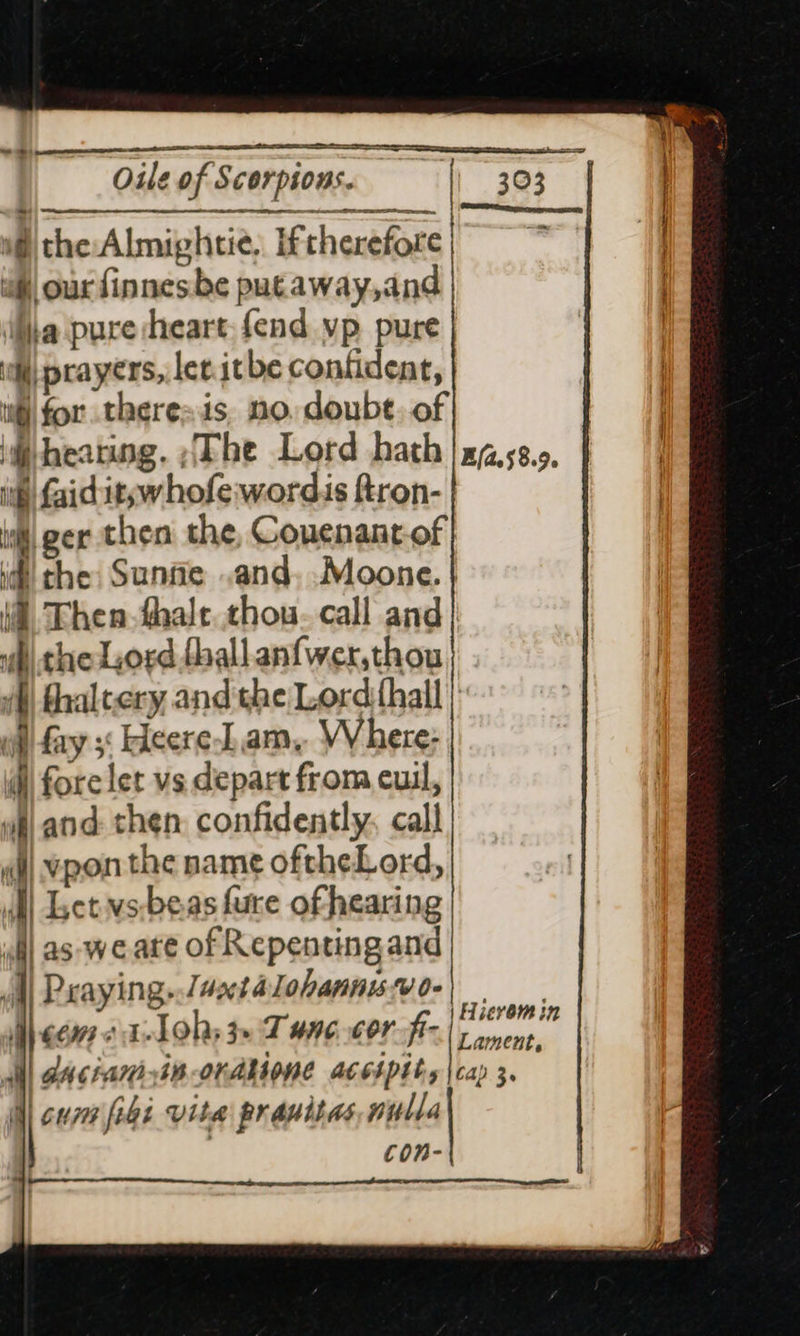 Oile of Scorpions. 303
the Almightie. If therefore
our ſinnes be put away, and
a pure heart ſend vp pure
prayers, let it be confident,
for there is no doubt of
heating. The Lord hath
Eſa. 58.9.
ſaid it, whoſe word is ſtron-
ger then the Couenant of
the Sunne and Moone.
Then ſhalt thou call and
the Lord ſhall anſwer, thou
ſhalt cry and the Lord ſhall
ſay ; Heere I am, VVhere-
fore let vs depart from euil,
and then confidently call
vpon the name of the Lord,
Let vs be as ſure of hearing
as we are of Repenting and
Praying. Iuxta Iohannis vo-
cem : 1. Ioh. 3. Tunc cor fi-
Hierom in
Lament,
cap 3.
duciam in oratione accipit,
cum ſibi vitæ prauitas nulla
con-